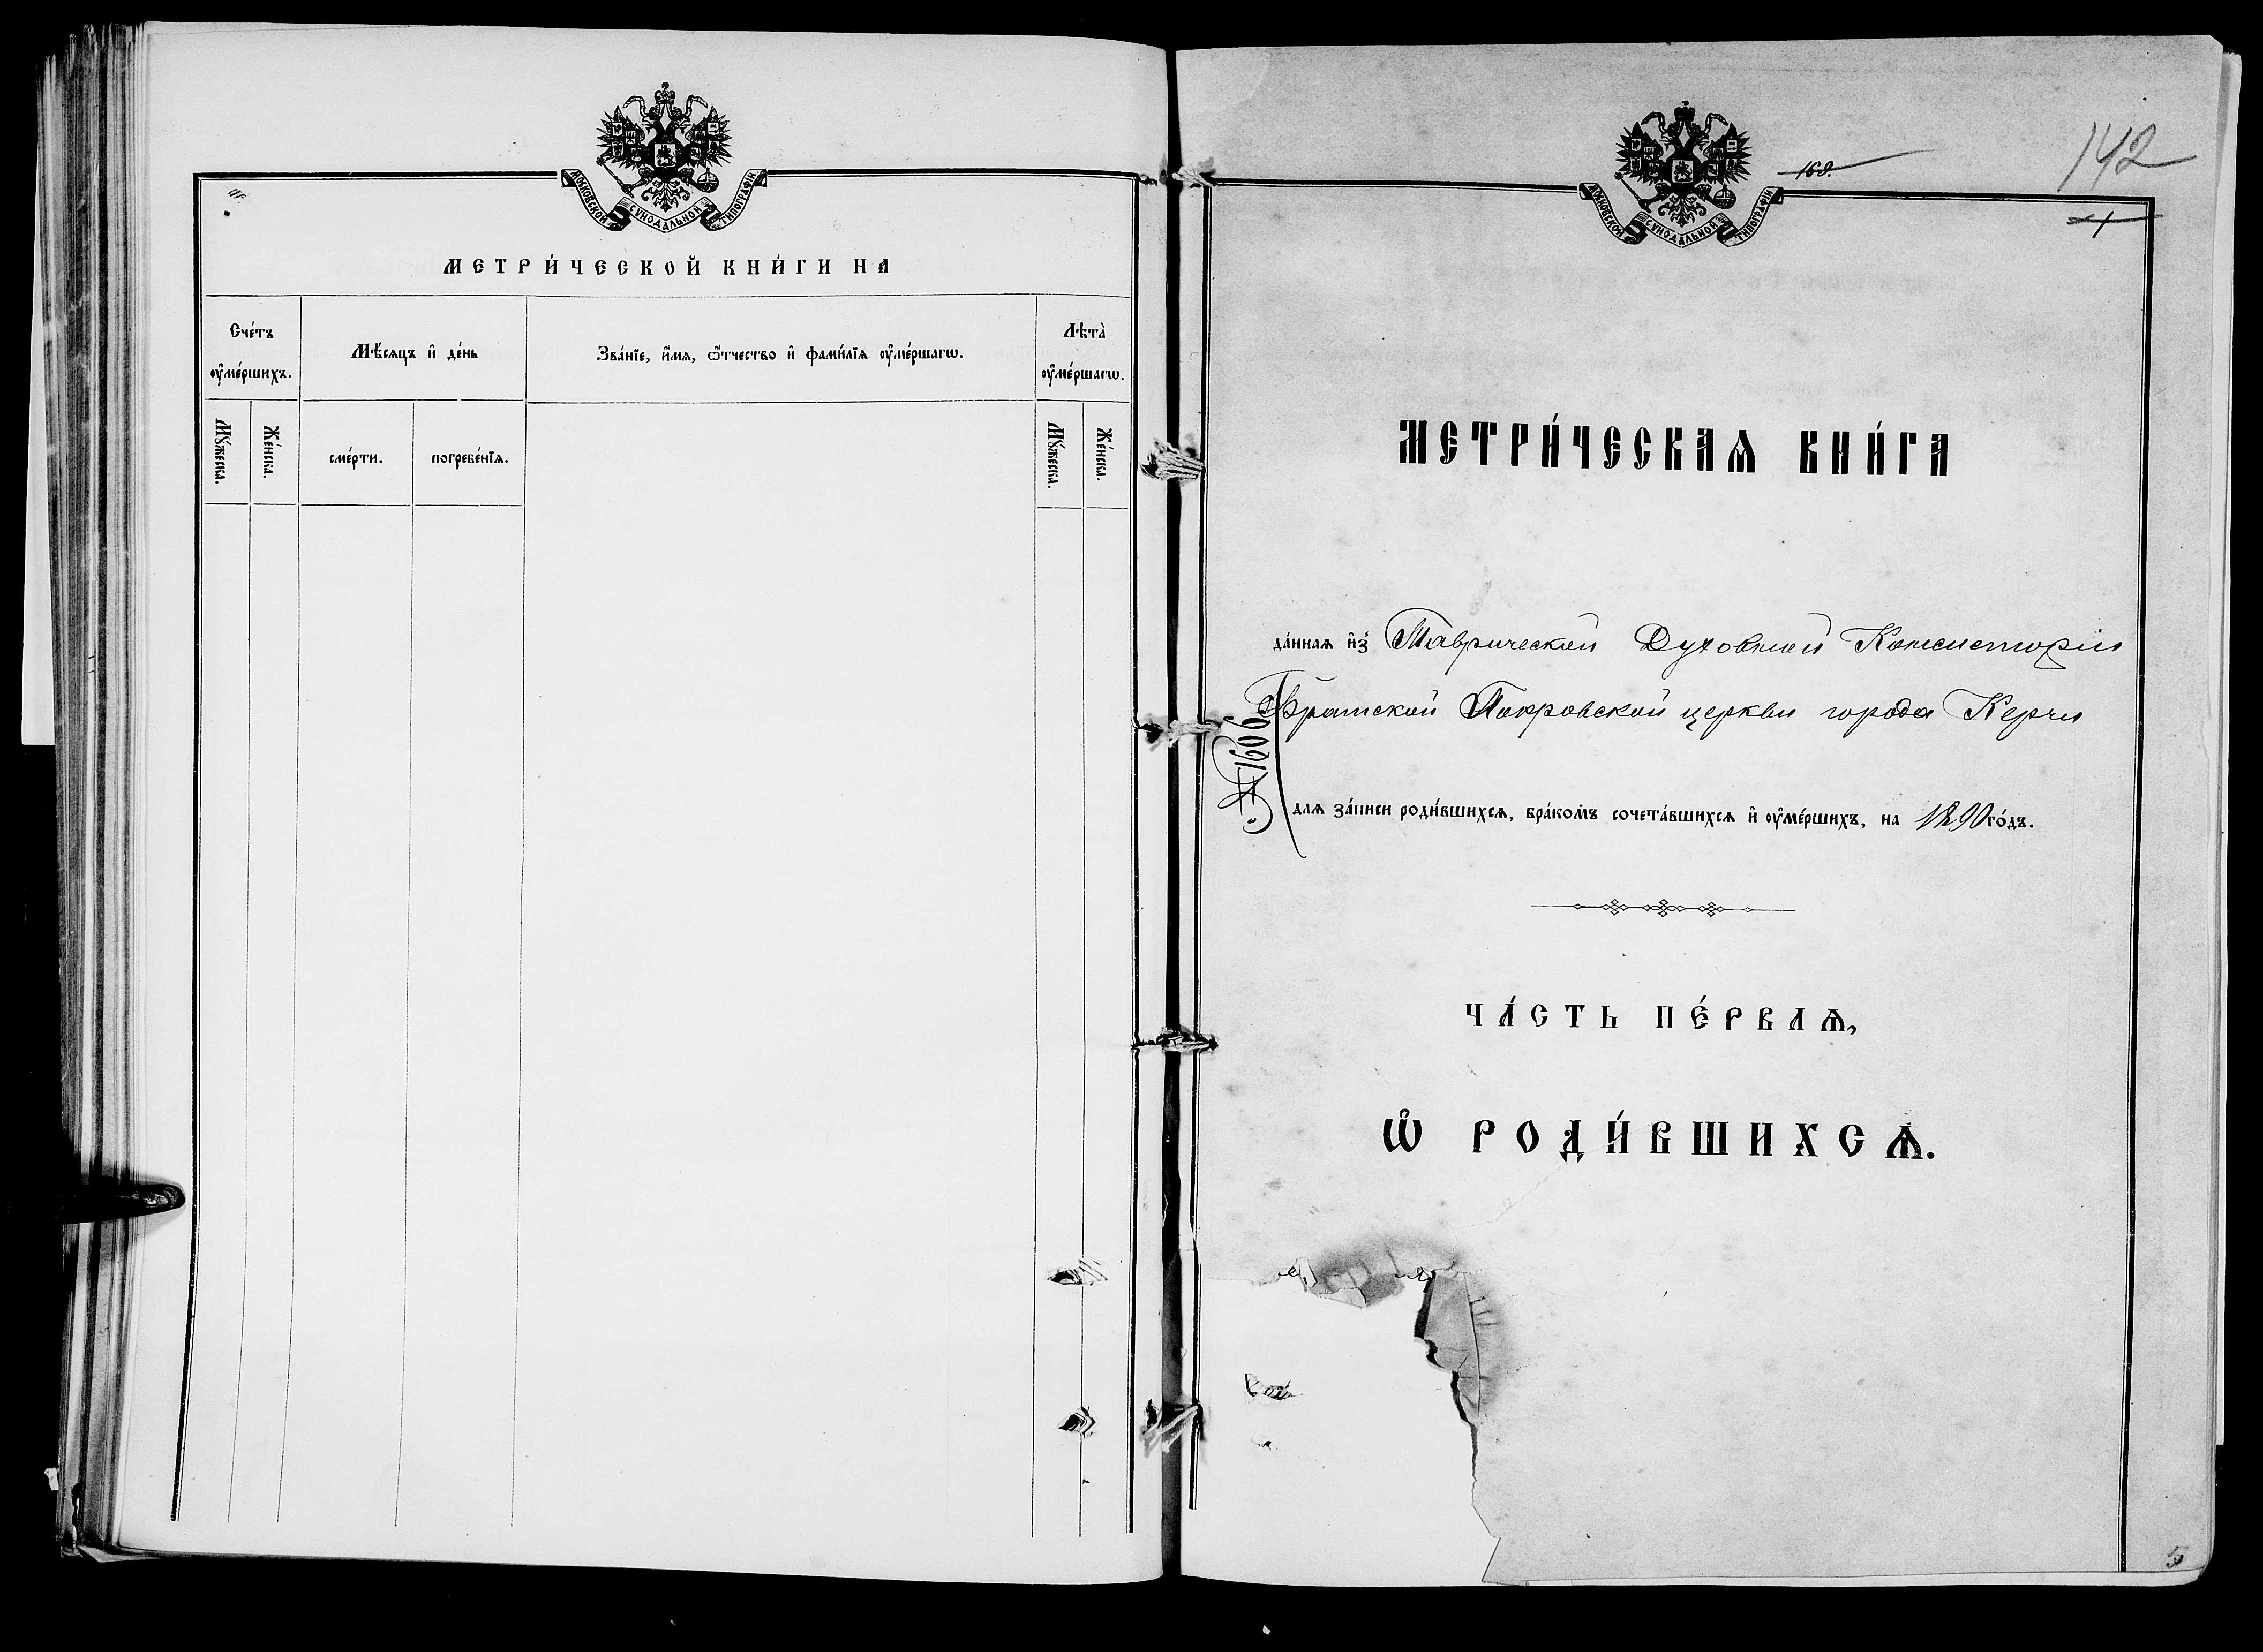 МОСКОВСКОЙ СѴНОДАЛЬНОЙ ТИПОГРАФІИ
МЕТРИ́ЧЕСКОЙ КНИ́ГИ НА
Сче́тъ ᲂу҆ме́ршихъ.
Мѣ́сяцъ и҆ де́нь
Зва́нїе, и҆́мѧ, ѻ҆́тчество и҆ фами́лїѧ ᲂу҆ме́ршагѡ.
Лѣта̀ ᲂу҆ме́ршагѡ.
Мꙋ́жеска.
Же́нска.
сме́рти.
погребе́нїѧ.
Мꙋ́жеска.
Же́нска.
МОСКОВСКОЙ СѴНОДАЛЬНОЙ ТИПОГРАФІИ
168.
142
1
МЕТРИ́ЧЕСКАѦ КНИ́ГА
да́ннаѧ и҆з̾ Таврической Духовной Консисторіи
Братской Покровской церкви города Керчи
№ 1606
длѧ за́писи роди́вшихсѧ, бра́комъ сочета́вшихсѧ и҆ ᲂу҆ме́ршихъ, на 1890 го́дъ.
ЧА́СТЬ ПЕ́РВАѦ,
Ѽ РОДИ́ВШИХСѦ.
5